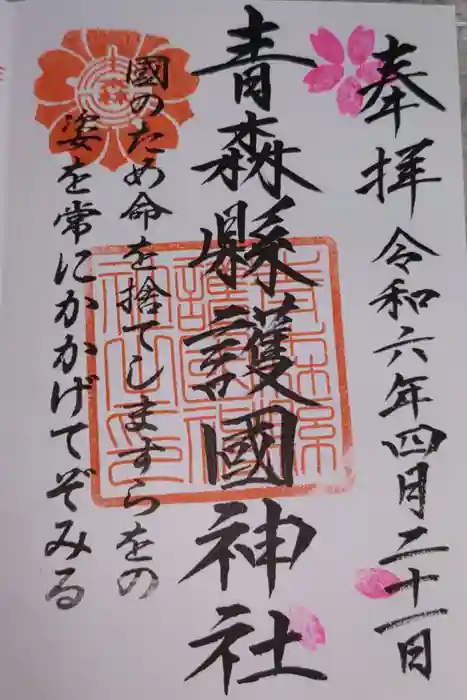 奉拝 令和六年四月二十一日
青森縣護國神社
國のため命を捨てしますらをの
姿を常にかかげてぞみる
青森
青森縣
護國神
社之印